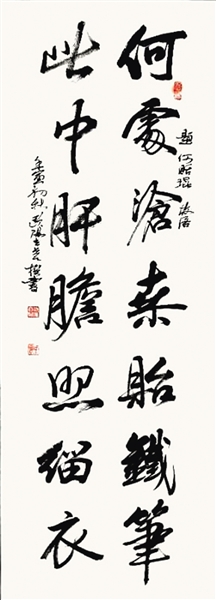 題何貽焜故居
何處滄桒貽鐵筆
此中肝膽照緇衣
壬寅初秋撰書